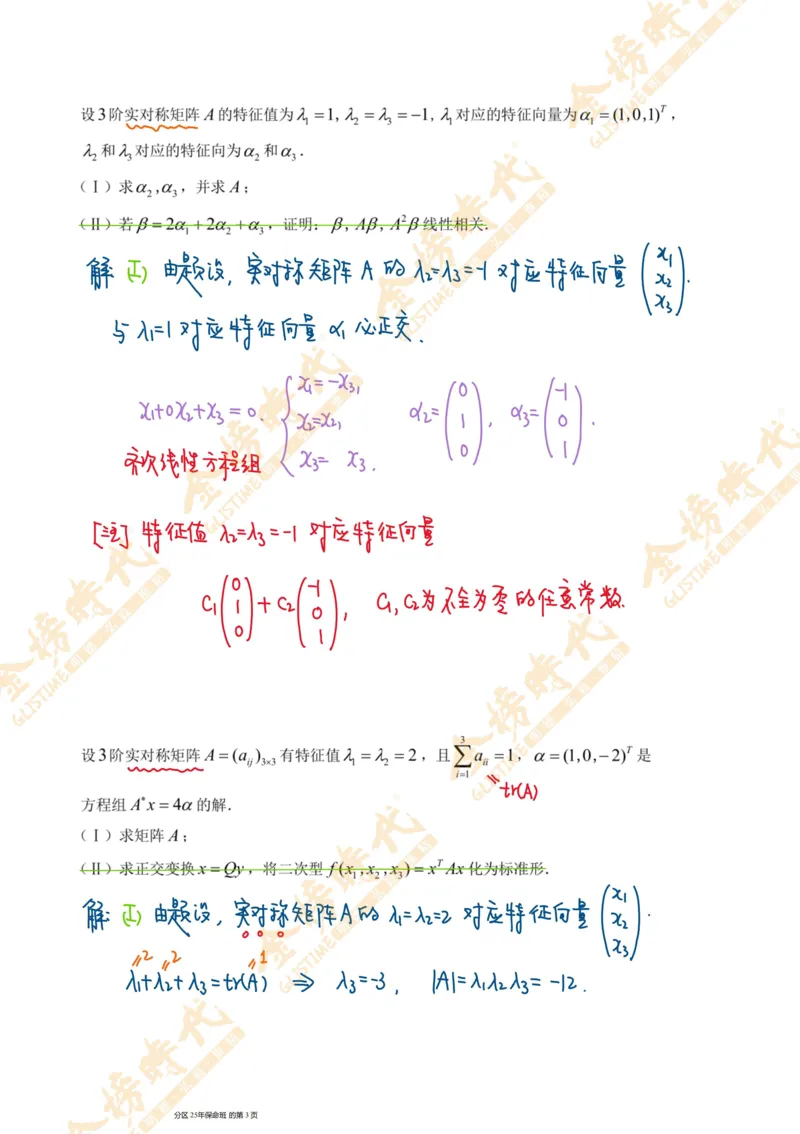 设3阶实对称矩阵A的特征值为λ₁=1, λ₂=λ₃=−1, λ₁对应的特征向量为α₁=(1,0,1)ᵀ,
λ₂和λ₃对应的特征向为α₂和α₃.
(Ⅰ)求α₂,α₃,并求A;
(Ⅱ)若β=2α₁+2α₂+α₃,证明:β, Aβ, A²β线性相关.
解 (I) 由题设, 实对称矩阵 A 的 λ₂=λ₃=-1 对应特征向量 (x₁ x₂ x₃).
与 λ₁=1 对应特征向量 α₁ 必正交.
x₁+0x₂+x₃=0. { x₁=-x₃, x₂=x₂, x₃= x₃. α₂=(0 1 0), α₃=(-1 0 1).
齐次线性方程组
[注] 特征值 λ₂=λ₃=-1 对应特征向量
C₁(0 1 0)+C₂(-1 0 1), C₁,C₂为不全为零的任意常数.
设3阶实对称矩阵A=(aᵢⱼ)₃ₓ₃有特征值λ₁=λ₂=2,且∑³ᵢ₌₁aᵢᵢ=1, α=(1,0,−2)ᵀ是
tr(A)
方程组A*x=4α的解.
(Ⅰ)求矩阵A;
(Ⅱ)求正交变换x=Qy,将二次型f(x₁,x₂,x₃)=xᵀAx化为标准形.
解 (I) 由题设, 实对称矩阵A的 λ₁=λ₂=2 对应特征向量 (x₁ x₂ x₃).
2 2 1
λ₁+λ₂+λ₃=tr(A) ⇒ λ₃=-3, |A|=λ₁λ₂λ₃=-12.
分区 25年保命班 的第 3 页
金榜時代
GLISTIME